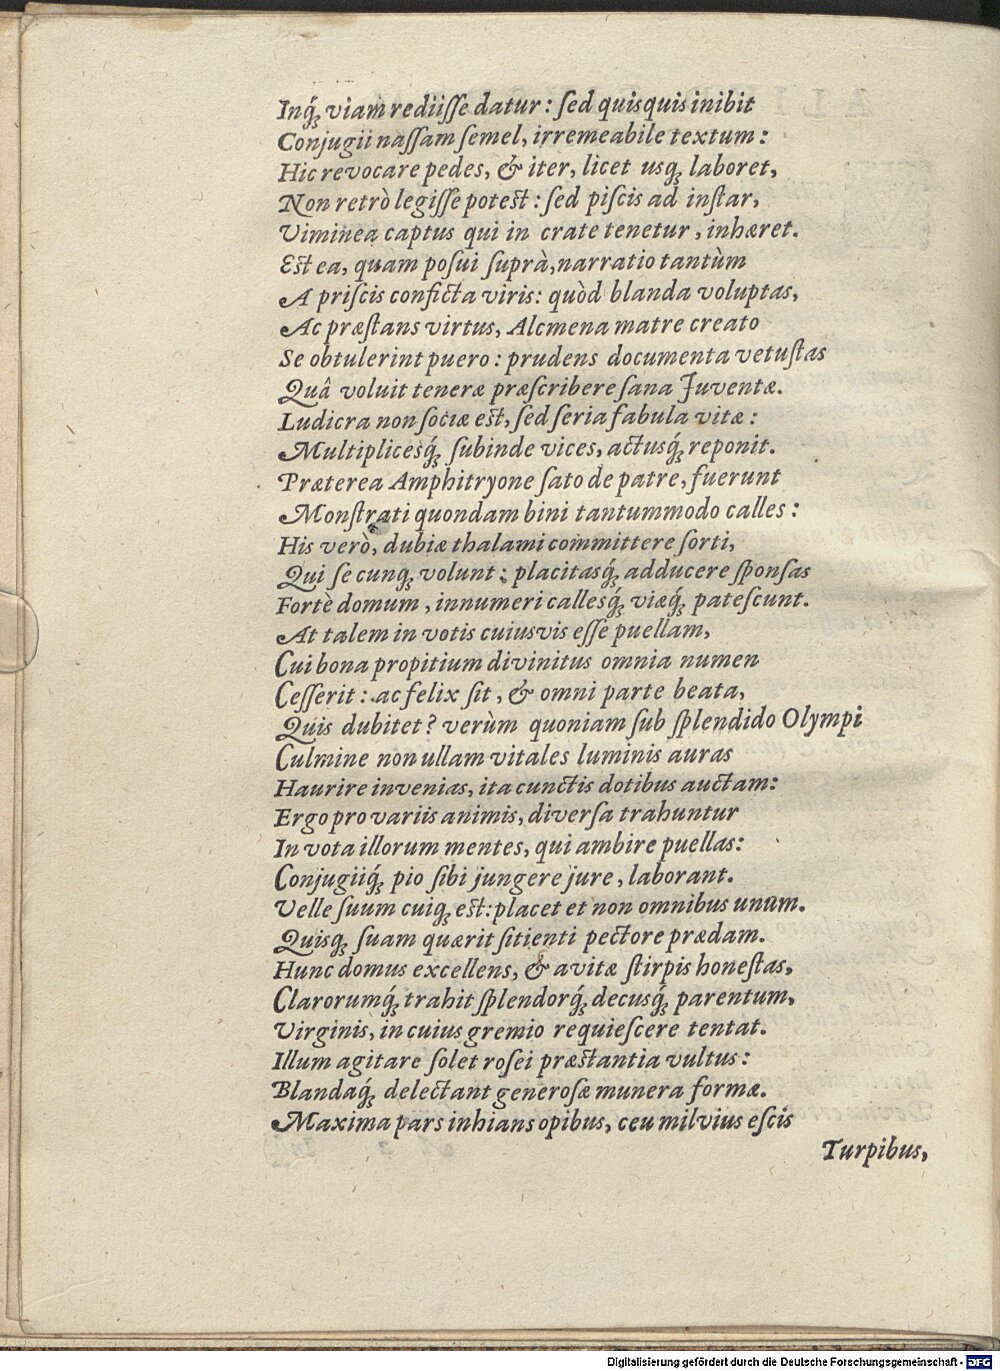 Inq́ꝫ viam rediiſſe datur: ſed quisquis inibit
Conjugii naſſam ſemel, irremeabile textum:
Hic revocare pedes, & iter, licet usqꝫ laboret,
Non retrò legiſſe potest: ſed piſcis ad inſtar,
Viminea captus qui in crate tenetur, inhæret.
Est ea, quam poſui ſuprà, narratio tantùm
A priſcis conficta viris: quòd blanda voluptas,
Ac præſtans virtus, Alcmena matre creato
Se obtulerint puero: prudens documenta vetuſtas
Quâ voluit teneræ præſcribere ſana Juventæ.
Ludicra non ſociæ est, ſed ſeria fabula vitæ:
Multiplicesq́ꝫ ſubinde vices, actusq́ꝫ reponit.
Præterea Amphitryone ſato de patre, fuerunt
Monſtrati quondam bini tantummodo calles:
His verò, dubiæ thalami committere ſorti,
Qui ſe cunqꝫ volunt: placitasq́ꝫ adducere ſponſas
Fortè domum, innumeri callesq́ꝫ viæq́ꝫ pateſcunt.
At talem in votis cuiusvis eſſe puellam,
Cui bona propitium divinitus omnia numen
Ceſſerit: ac felix ſit, & omni parte beata,
Quis dubitet? verùm quoniam ſub ſplendido Olympi
Culmine non ullam vitales luminis auras
Haurire invenias, ita cunctis dotibus auctam:
Ergo pro variis animis, diverſa trahuntur
In vota illorum mentes, qui ambire puellas:
Conjugiiq́ꝫ pio ſibi jungere jure, laborant.
Velle ſuum cuiqꝫ est: placet et non omnibus unum.
Quisqꝫ ſuam quærit ſitienti pectore prædam.
Hunc domus excellens, & avitæ ſtirpis honeſtas,
Clarorumq́ꝫ trahit ſplendorq́ꝫ decusq́ꝫ parentum,
Virginis, in cuius gremio requieſcere tentat.
Illum agitare ſolet roſei præstantia vultus:
Blandaq́ꝫ delectant generoſæ munera formæ.
Maxima pars inhians opibus, ceu milvius eſcis
Turpibus,
Digitalisierung gefördert durch die Deutsche Forschungsgemeinschaft - DFG